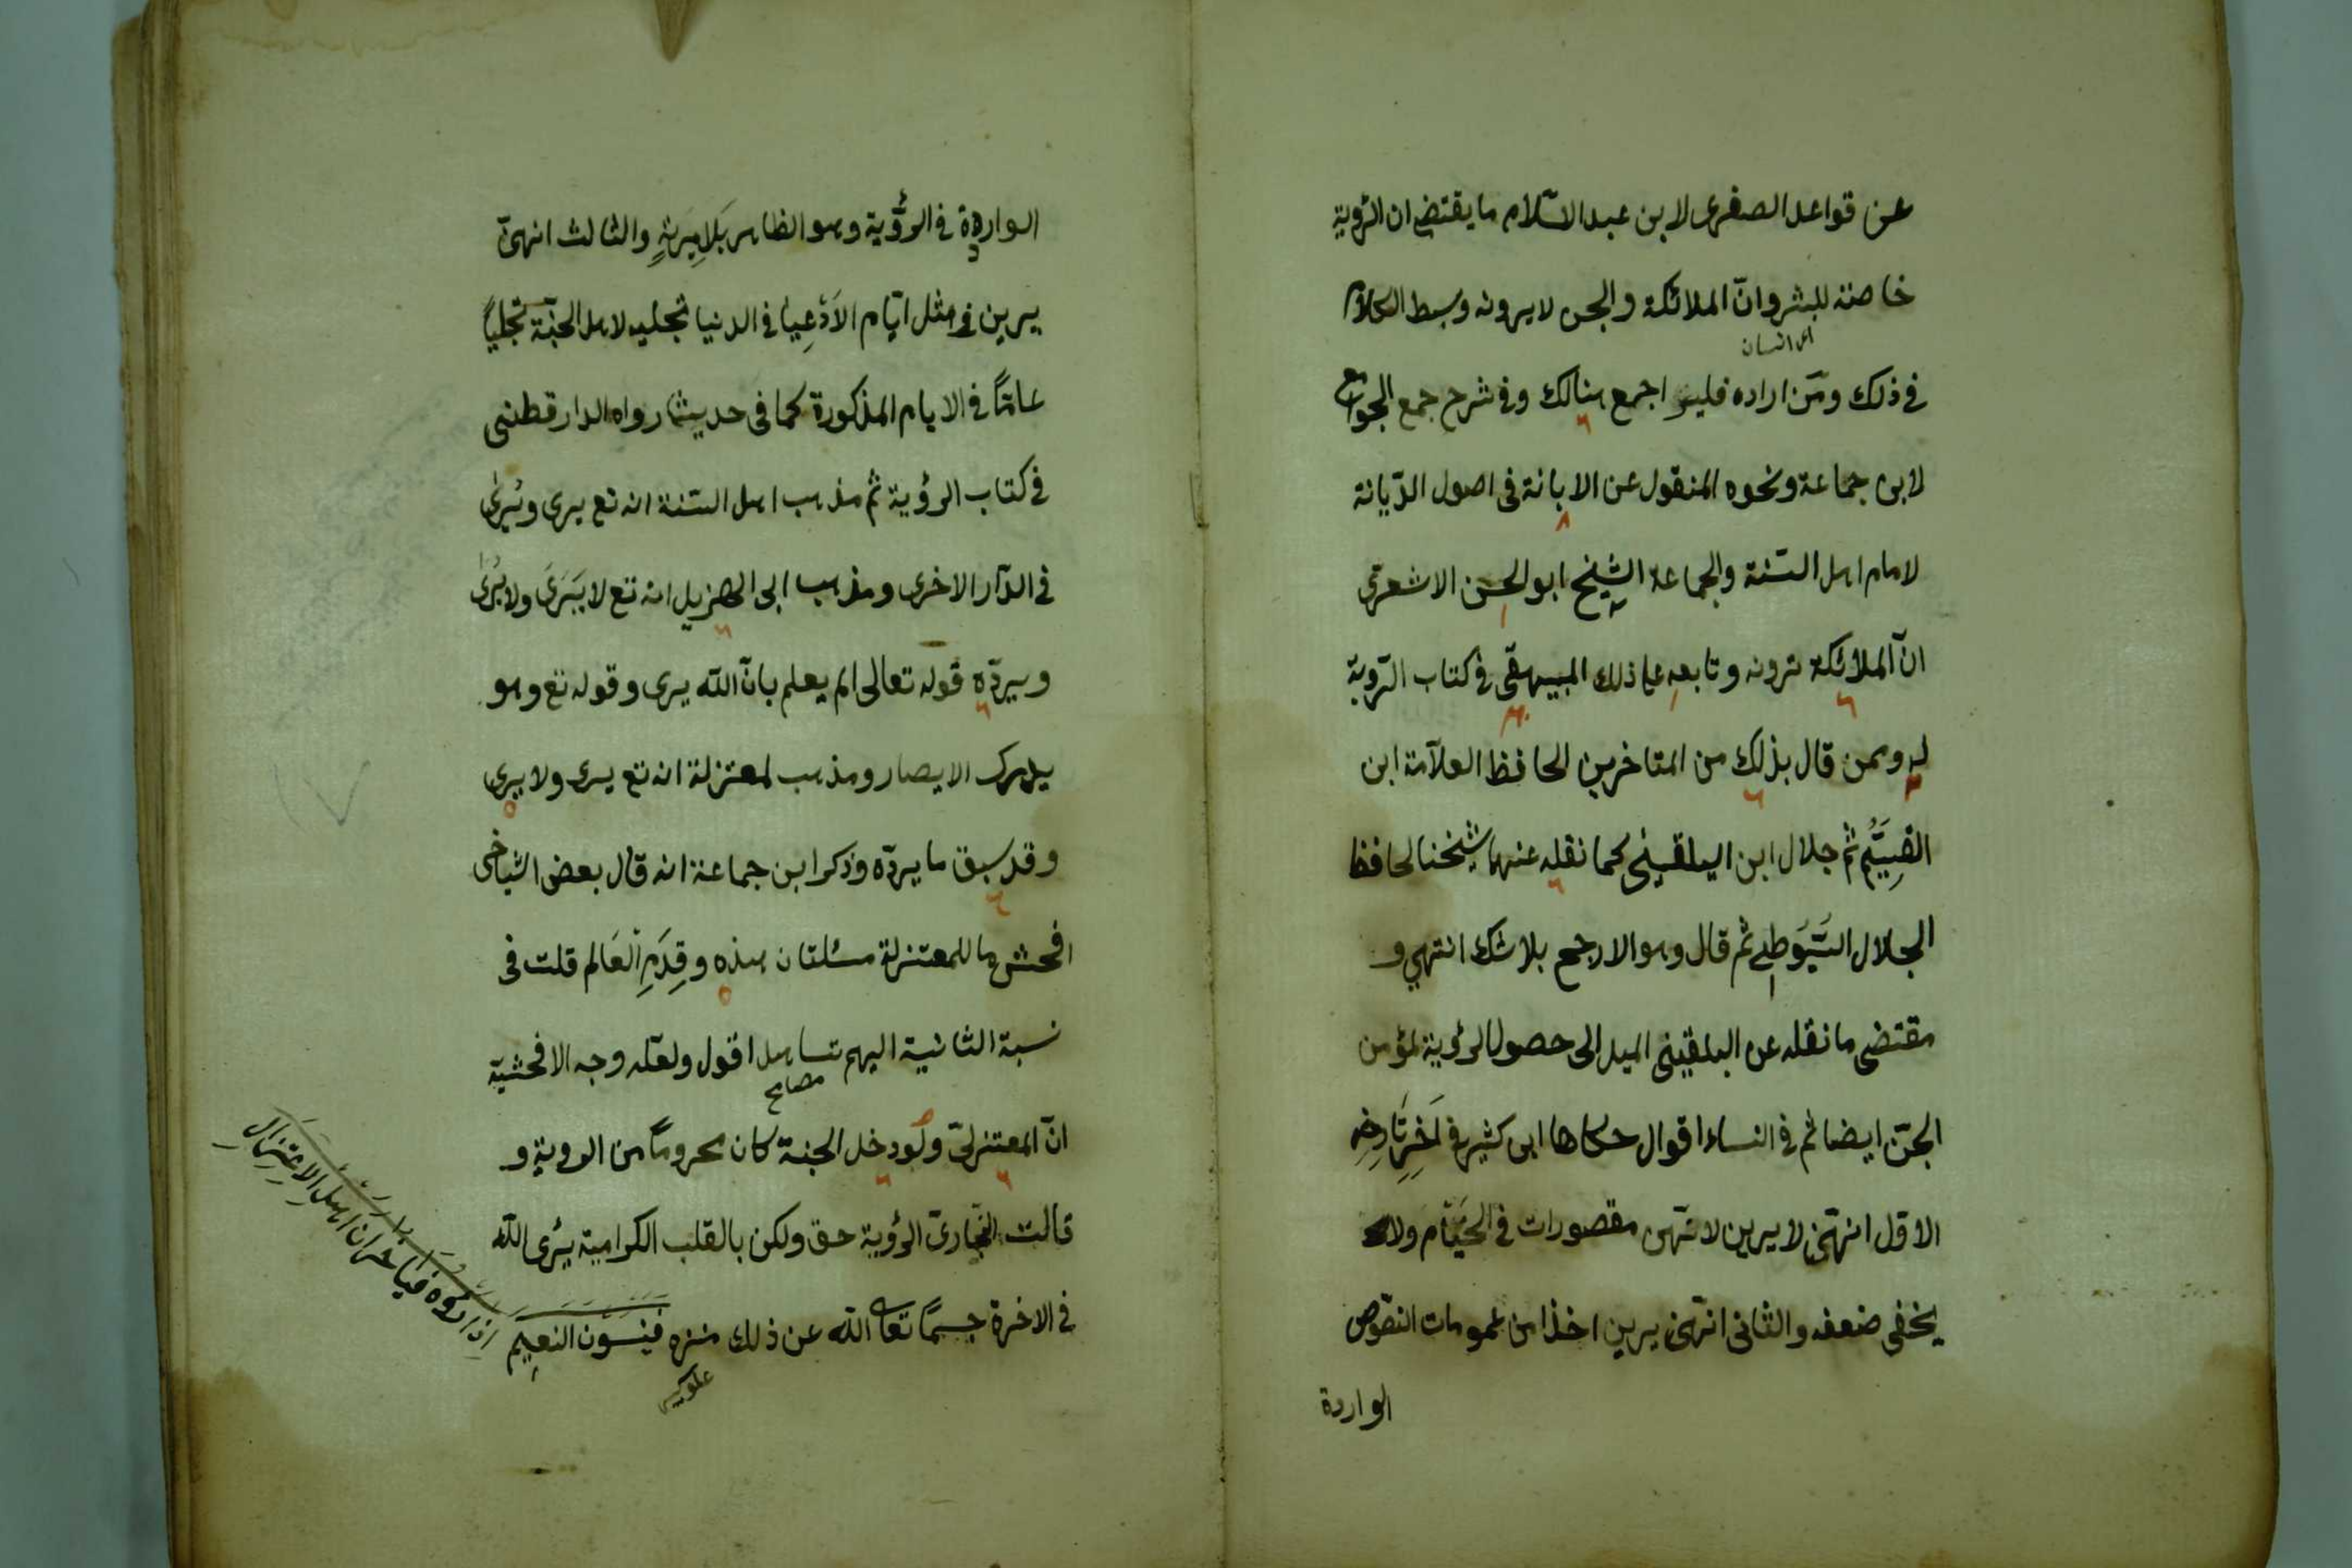 عن قواعد الصغرى لابن عبد السّلام ما يقتضي ان الرّوية
خاصة للبشر وانّ الملائكة والجن لا يرونه وبسط الكلام
اى انسان
في ذلك ومَن اراده فليراجع هنالك وفي شرح جمع الجوامع
لابن جماعة ونحوه المنقول عن الابانة في اصول الدّيانة
لامام اهل السّنة والجماعة الشيخ ابو الحسن الاشعري
انّ الملائكة ترونه وتابعه علي ذلك البيهقي في كتاب الرّوية
له وممن قال بذلك من المتاخرين الحافظ العلّامة ابن
القَيِّم ثم جلال ابن البلقيني كما نقله عنهما شيخنا الحافظ
الجلال السّيَوطي ثم قال وهو الارجح بلا شك انتهي و
مقتضى ما نقله عن البلقيني الميل الى حصول الرؤية لمؤمن
الجنّ ايضا ثم في النساء اقوال حكاها ابن كثير في آخر تاريخه
الاول انهنّ لا يرين لانهن مقصورات في الخيام ولا
يخفى ضعفه والثاني انهنّ يرين اخذا من عمومات النصوص
الواردة
الواردة في الرؤية وهو الظاهر بَلَا مِرْيَةٍ والثالث انهنّ
يرين في مثل ايّام الاَعْيَاد في الدنيا تجليه لاهل الجنّة تجليًا
عامًّا في الايام المذكورة كما في حديث رواه الدارقطني
في كتاب الرؤية ثم مذهب اهل السّنة انه تع يرى ويُرى
في الدّار الاخرى ومذهب ابى الهزيل انه تع لا يَرَى ولا يُرى
ويردّه قوله تعالى الم يعلم بانّ الله يرى وقوله تع وهو
يدرك الابصار ومذهب لمعتزلة انه تع يرى ولا يرى
وقد سبق ما يردّه وذكر ابن جماعة انه قال بعض اشياخى
افحش ما للمعتزلة مسئلتان هذه وقِدَمِ العَالم قلت في
نسبة الثانية اليهم تساهل اقول ولعلّه وجه الافحشيّة
انّ المعتزلىّ ولو دخل الجنة كان محروماً من الروية و
قالت النّجاريّ الرؤية حق ولكن بالقلب الكرامية يُرى الله
في الاخرة جسمًا تعالى الله عن ذلك منزه فينسون النعيم
اذا راوه فيا خسران اهل الاعتزال